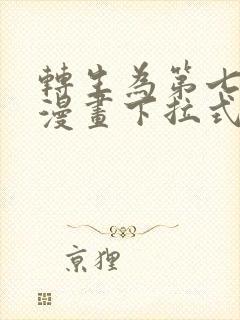 轉生為第七
漫畫下拉式
京狸